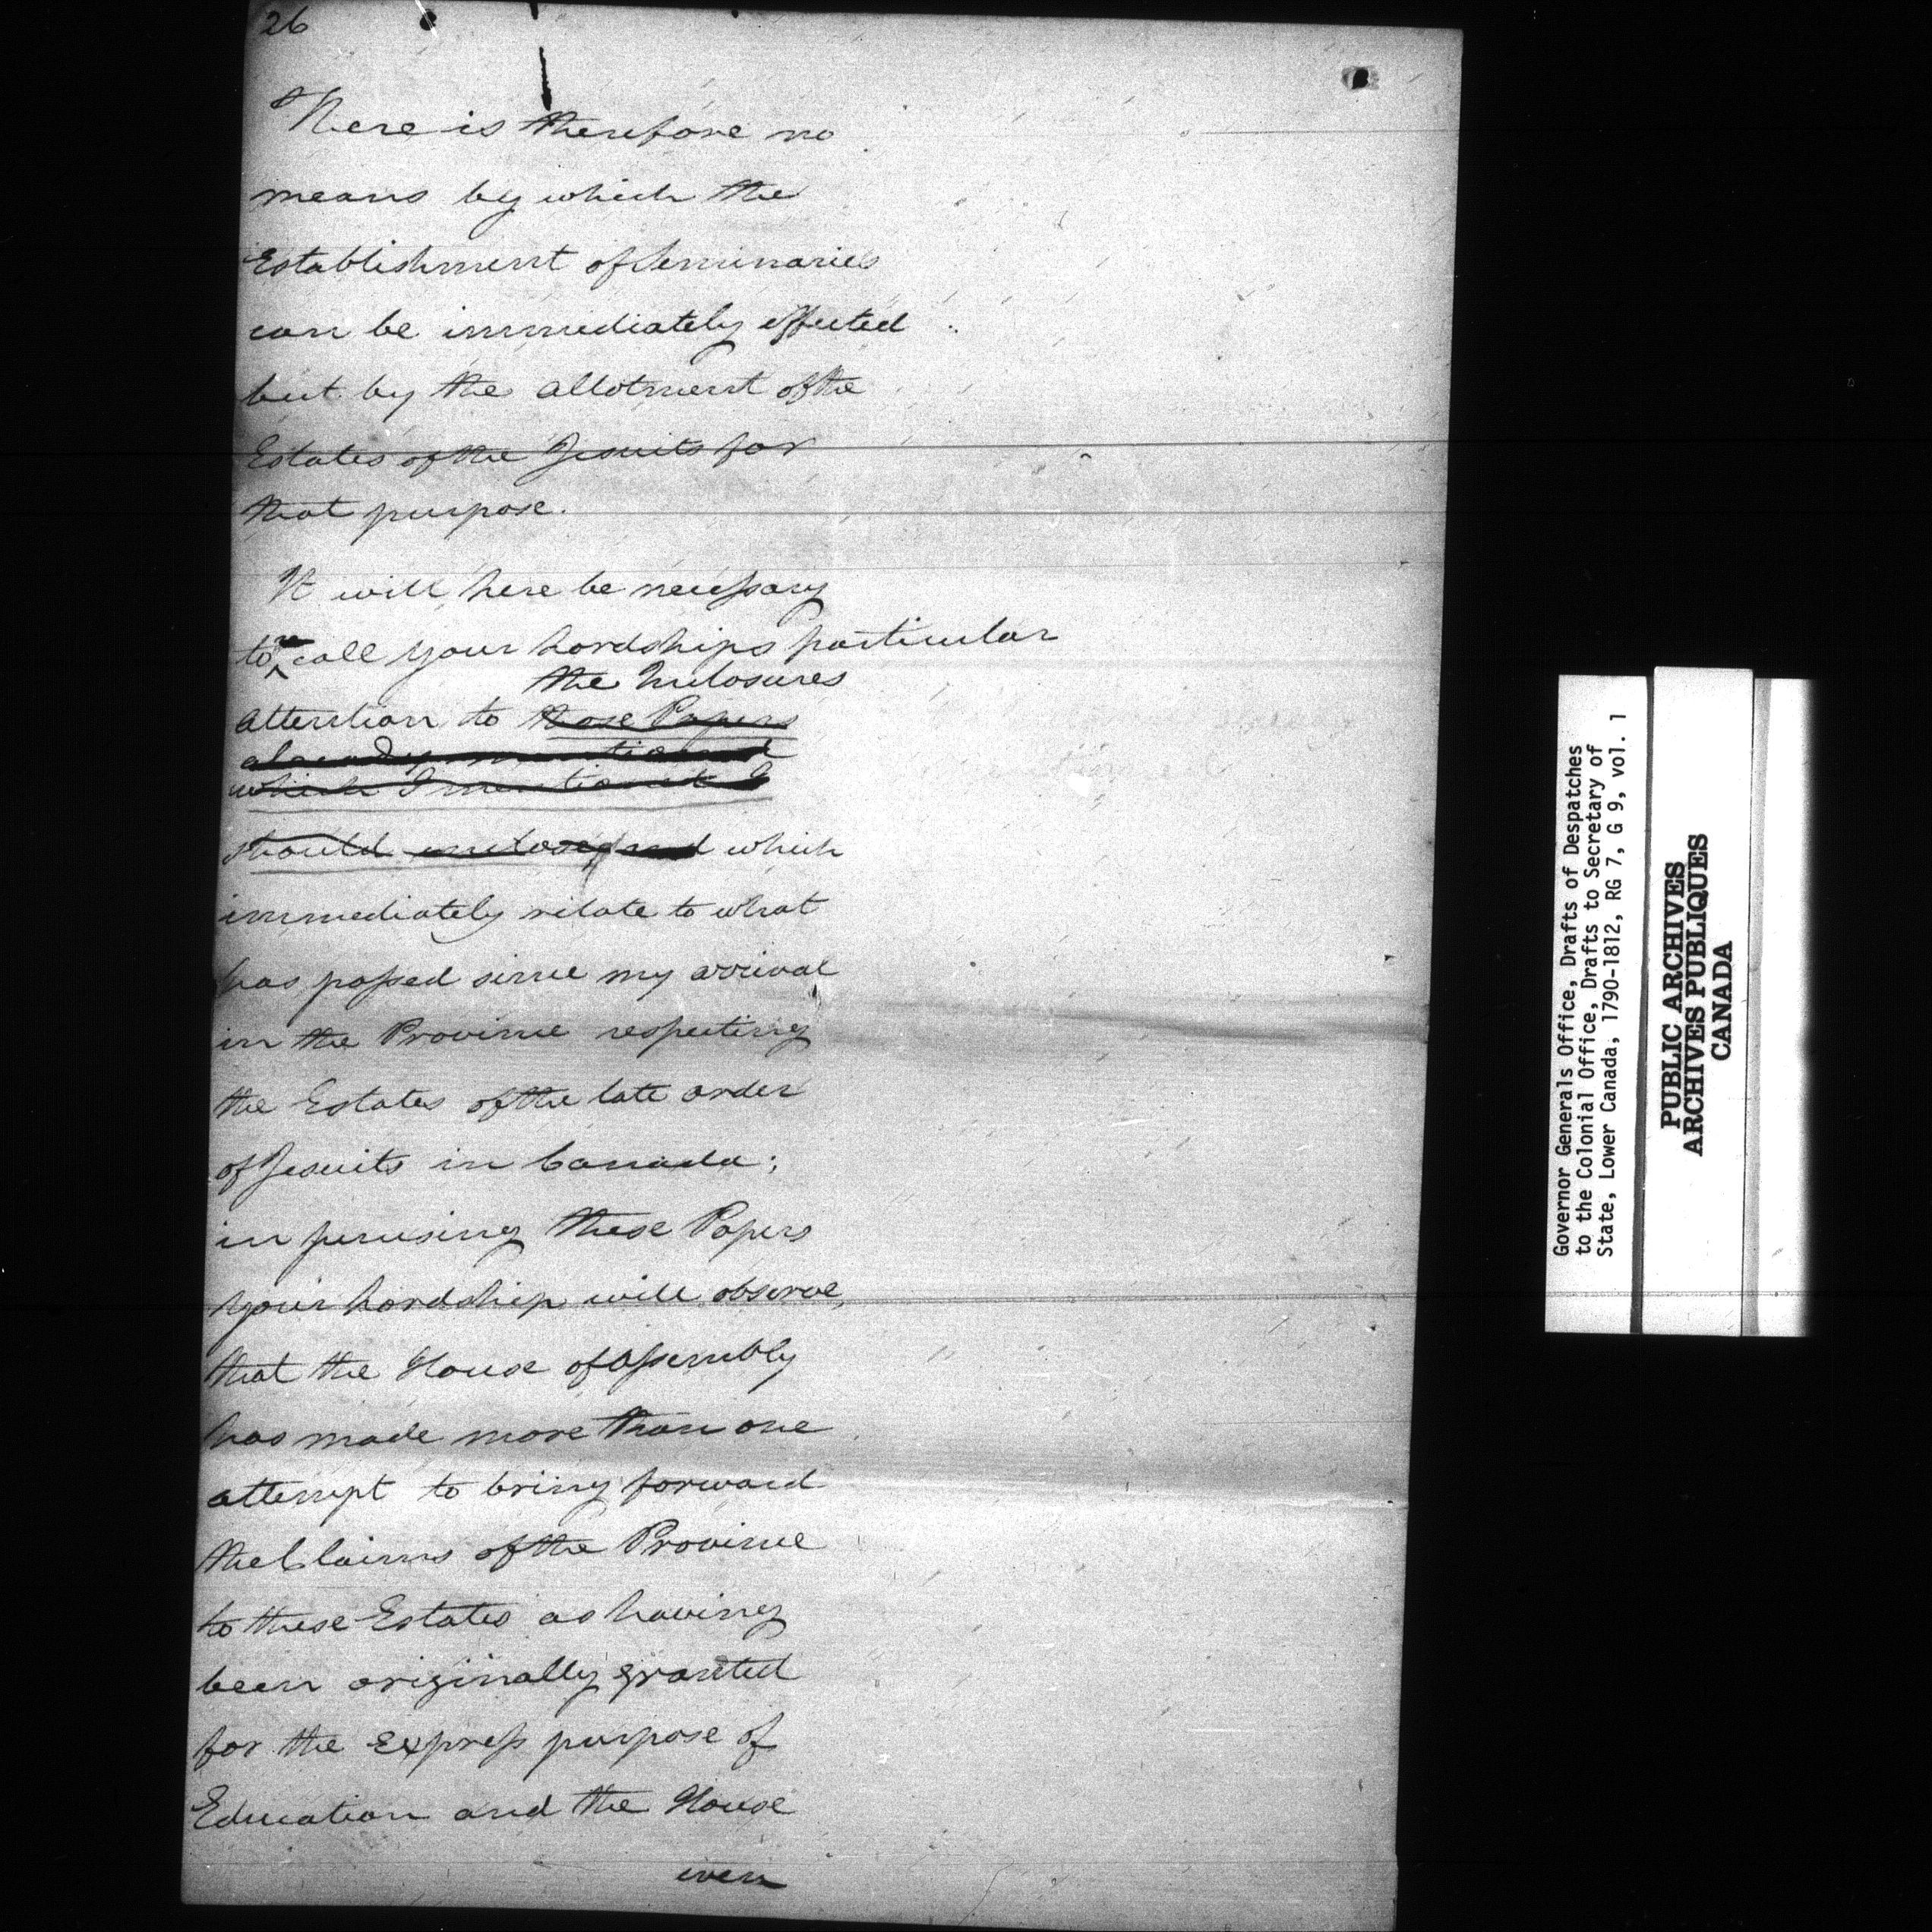 26
There is therefore no
means by which the
Establishment of Seminaries
can be immediately effected
but by the allotment of the
Estates of the Jesuits for
that purpose.
It will here be necessary
re
to call your Lordships particular
the Inclosures
attention to those Papers
already mentioned
which I mentioned I
should inclose, and which
immediately relate to what
has passed since my arrival
in the Province respecting
the Estates of the late order
of Jesuits in Canada;
in perusing these Papers
your Lordship will observe,
that the House of Assembly
has made more than one
attempt to bring forward
the Claims of the Province
to these Estates as having
been originally granted
for the express purpose of
Education and the House
even
Governor Generals Office, Drafts of Despatches
to the Colonial Office, Drafts to Secretary of
State, Lower Canada, 1790-1812, RG 7, G 9, vol. 1
PUBLIC ARCHIVES
ARCHIVES PUBLIQUES
CANADA